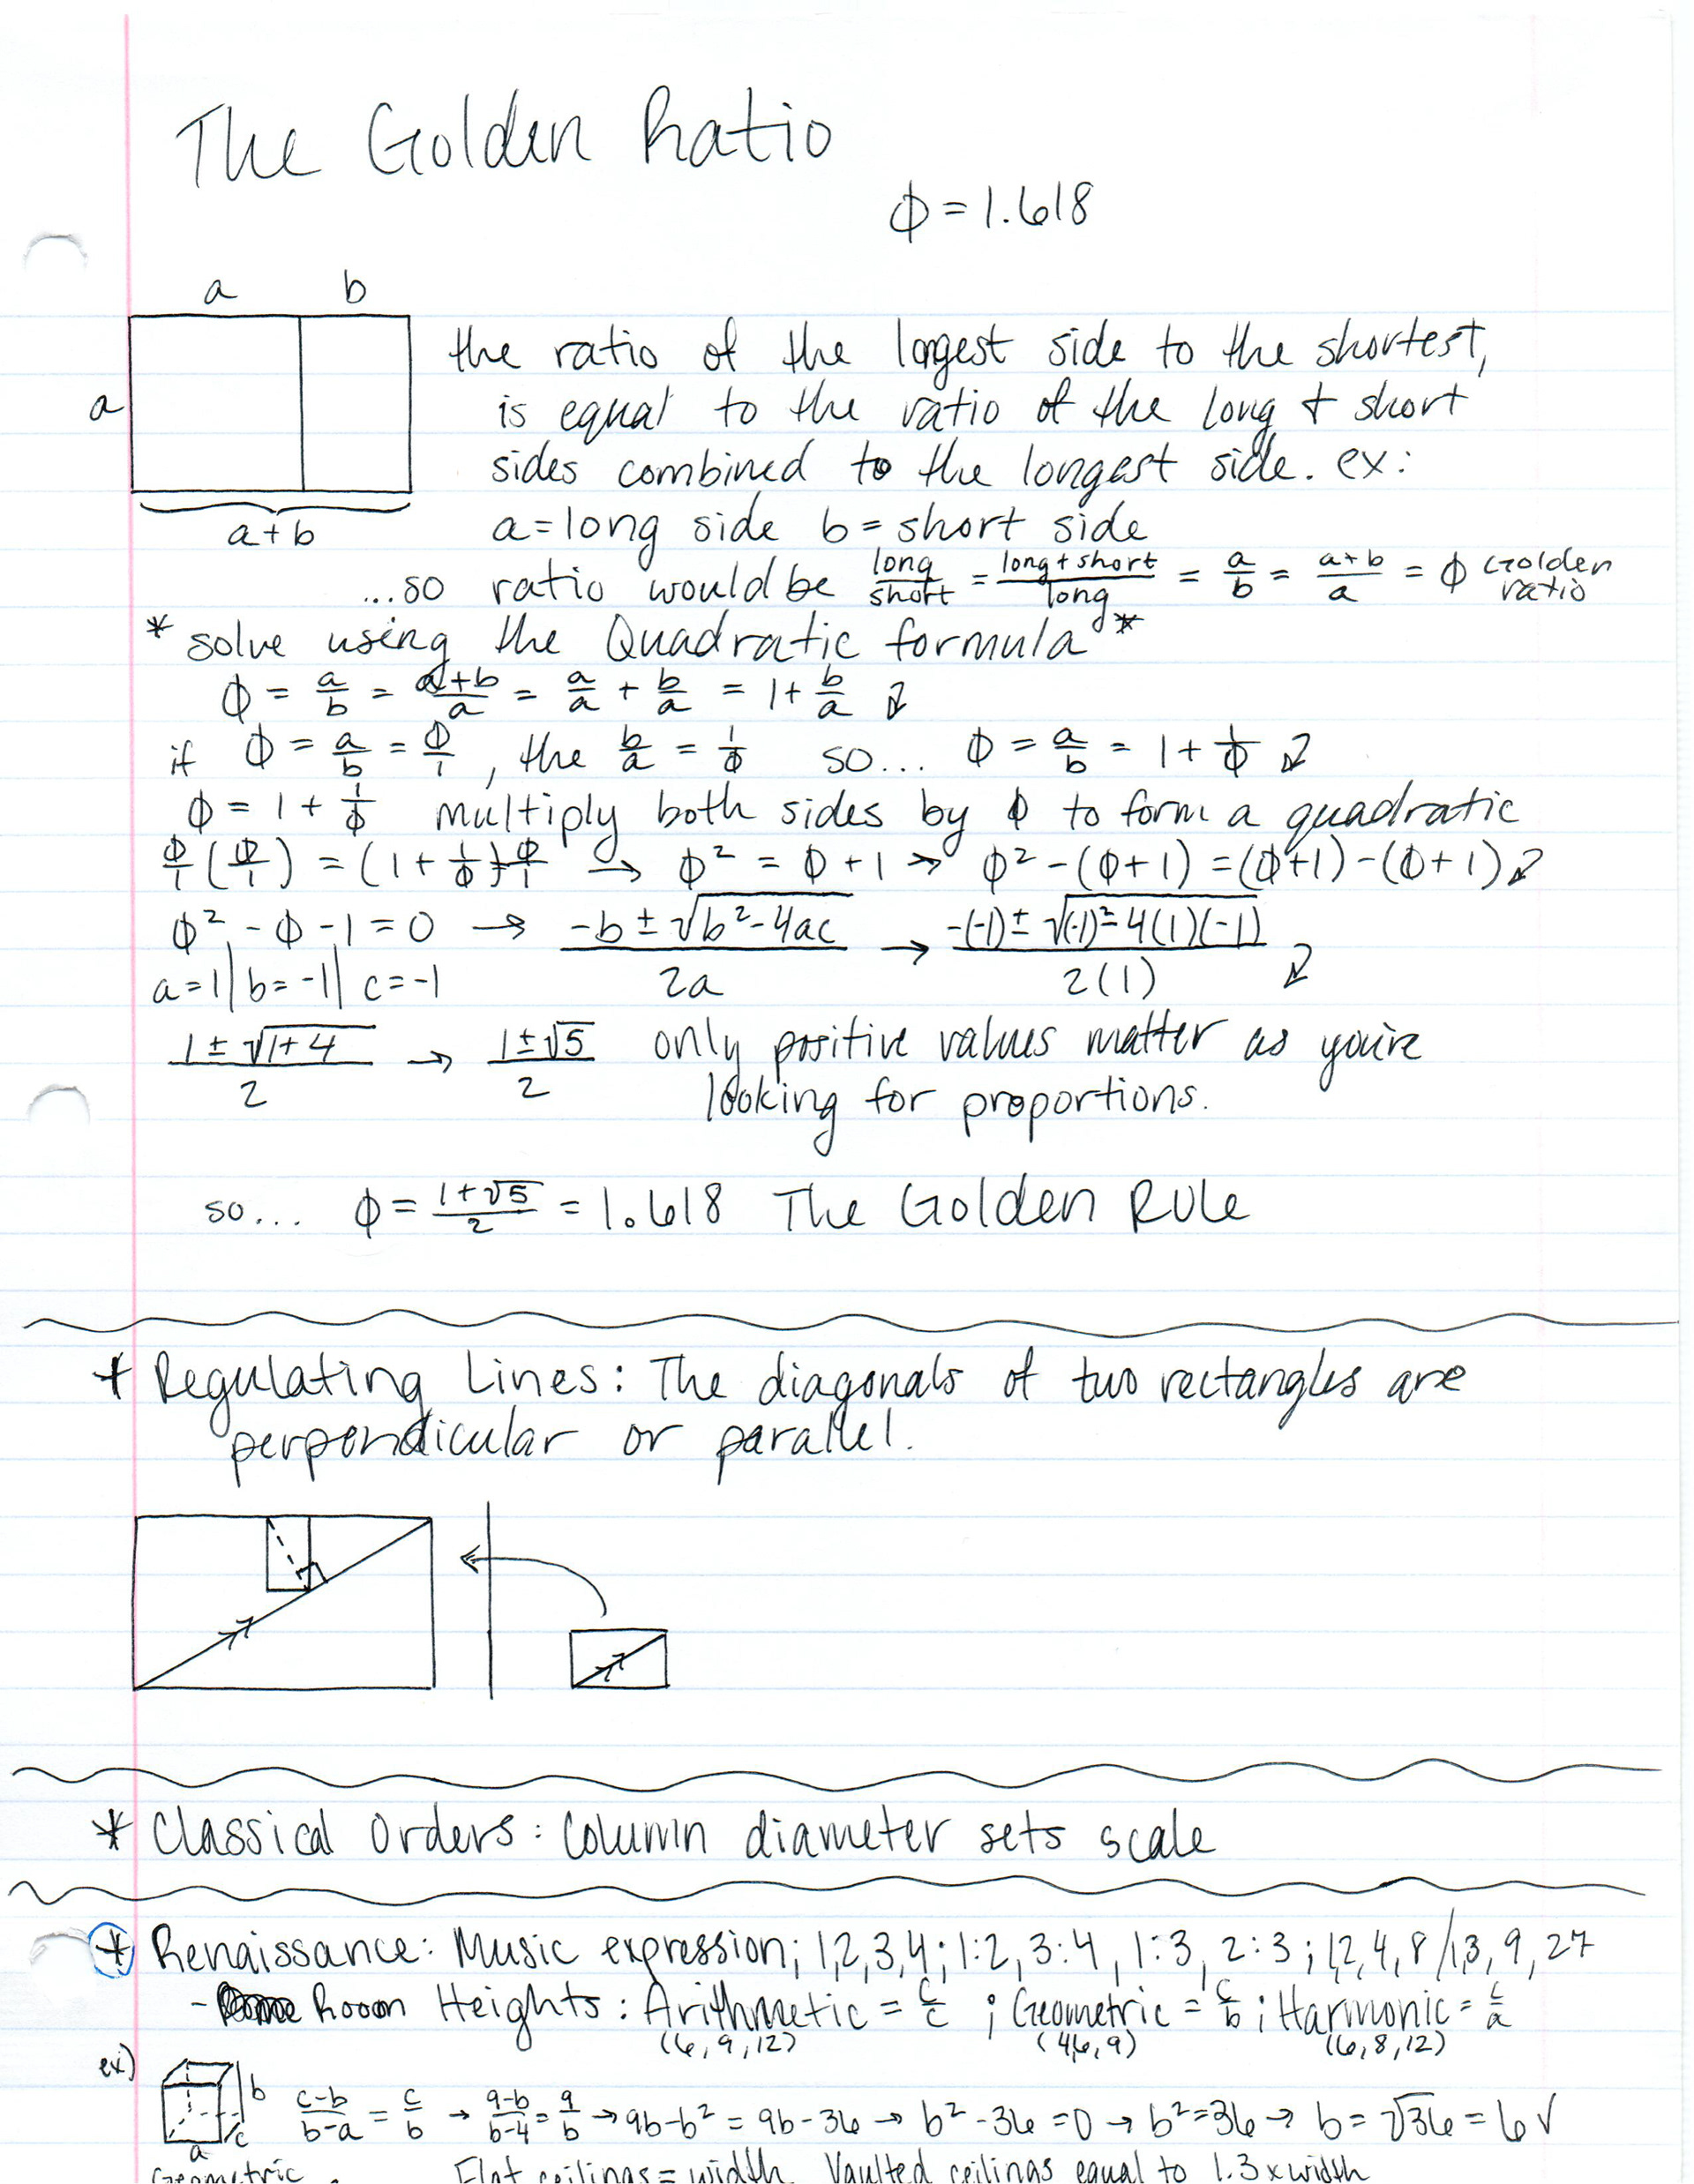 The Golden Ratio
ϕ = 1.618
a b
a
a+b
the ratio of the longest side to the shortest,
is equal to the ratio of the long + short
sides combined to the longest side. ex:
a = long side b = short side
...so ratio would be long/short = long + short/long = a/b = a+b/a = ϕ Golden ratio
* solve using the Quadratic formula *
ϕ = a/b = a+b/a = a/a + b/a = 1 + b/a ↲
if ϕ = a/b = ϕ/1, the b/a = 1/ϕ so... ϕ = a/b = 1 + 1/ϕ ↲
ϕ = 1 + 1/ϕ multiply both sides by ϕ to form a quadratic
ϕ/1 (ϕ/1) = (1 + 1/ϕ) ϕ/1 → ϕ² = ϕ + 1 → ϕ² - (ϕ+1) = (ϕ+1) - (ϕ+1) ↲
ϕ² - ϕ - 1 = 0 → -b ± √b²-4ac / 2a → -(-1) ± √(-1)² - 4(1)(-1) / 2(1) ↲
a=1 | b=-1 | c=-1
1 ± √1+4 / 2 → 1 ± √5 / 2 only positive values matter as you're
looking for proportions.
so... ϕ = 1+√5 / 2 = 1.618 The Golden Rule
* Regulating Lines: The diagonals of two rectangles are
perpendicular or parallel.
* Classical Orders: Column diameter sets scale
* Renaissance: Music expression; 1,2,3,4; 1:2, 3:4, 1:3, 2:3; 1,2,4,8/1,3,9,27
- Room Heights: Arithmetic = c/c ; Geometric = c/b ; Harmonic = c/a
(6,9,12) (4,6,9) (6,8,12)
ex)
b
a c
c-b/b-a = c/b → 9-b/b-4 = 9/b → 9b-b² = 9b-36 → b²-36=0 → b²=36 → b=√36=6 √
Geometric Flat ceilings = width Vaulted ceilings equal to 1.3 x width